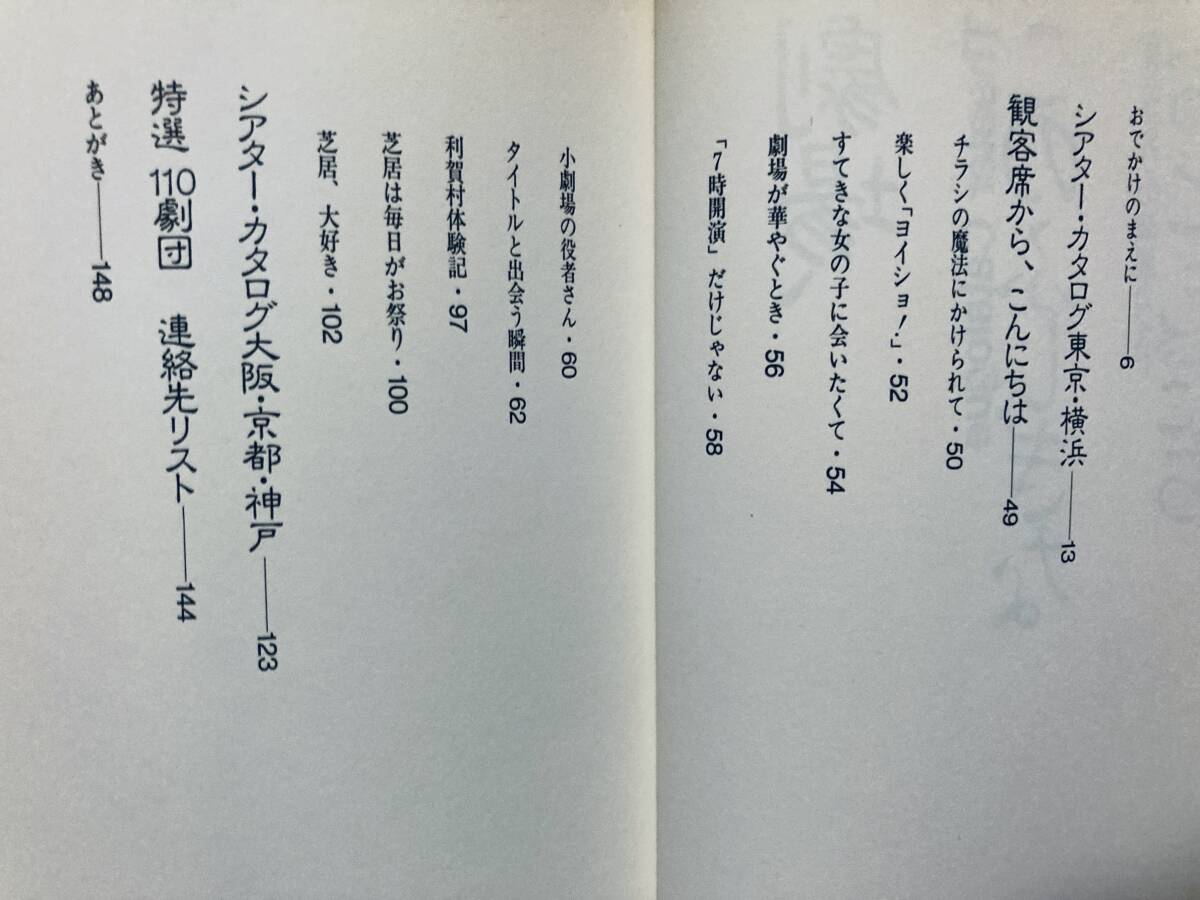 おでかけのまえに——6
シアター・カタログ東京・横浜——13
観客席から、こんにちは——49
チラシの魔法にかけられて・50
楽しく「ヨイショ!」・52
すてきな女の子に会いたくて・54
劇場が華やぐとき・56
「7時開演」だけじゃない・58
小劇場の役者さん・60
タイトルと出会う瞬間・62
利賀村体験記・97
芝居は毎日がお祭り・100
芝居、大好き・102
シアター・カタログ大阪・京都・神戸——123
特選 110劇団 連絡先リスト——144
あとがき——148